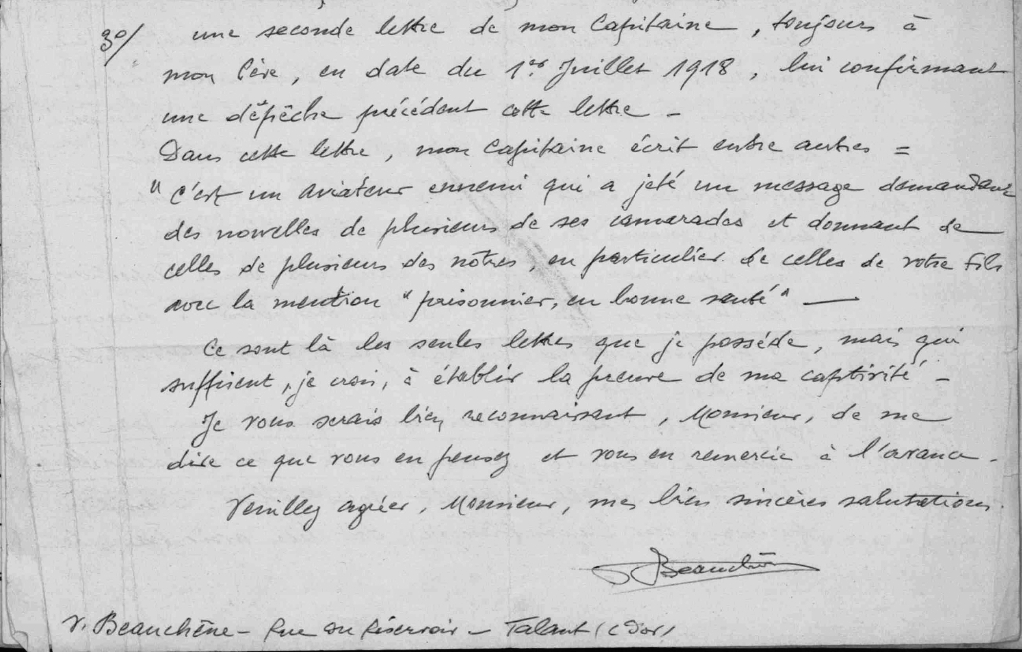 3°/ une seconde lettre de mon Capitaine, toujours à
mon Père, en date du 1er Juillet 1918, lui confirmant
une dépêche précédent cette lettre -
Dans cette lettre, mon Capitaine écrit entre autres =
" C'est un aviateur ennemi qui a jeté un message demandant
des nouvelles de plusieurs de ses camarades et donnant de
celles de plusieurs des nôtres, en particulier de celles de votre fils
avec la mention "prisonnier, en bonne santé" —
Ce sont là les seules lettres que je possède, mais qui
suffisent, je crois, à établir la preuve de ma captivité -
Je vous serais bien reconnaissant, Monsieur, de me
dire ce que vous en pensez et vous en remercie à l'avance -
Veuillez agréer, Monsieur, mes bien sincères salutations.
Beauchêne
V. Beauchêne - Rue du Réservoir - Talant (C d'or)